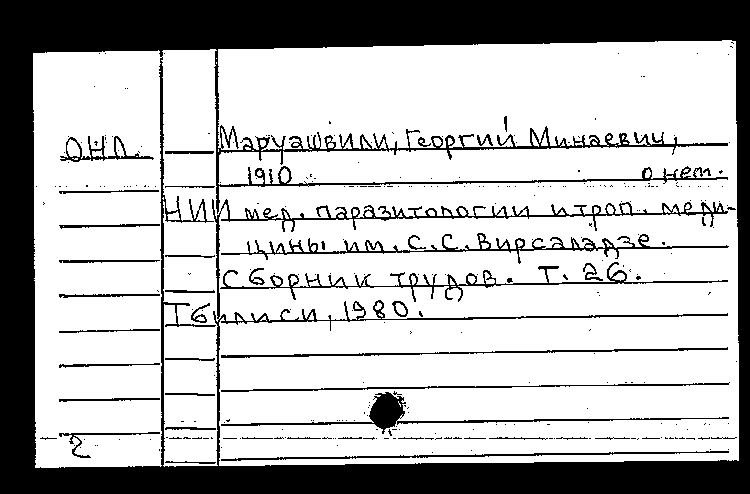 ОНЛ. Маруашвили, Георгий Минаевич,
1910 о нем.
НИИ мед. паразитологии и троп. меди-
цины им. С.С. Вирсаладзе.
Сборник трудов. Т. 26.
Тбилиси, 1980.
2